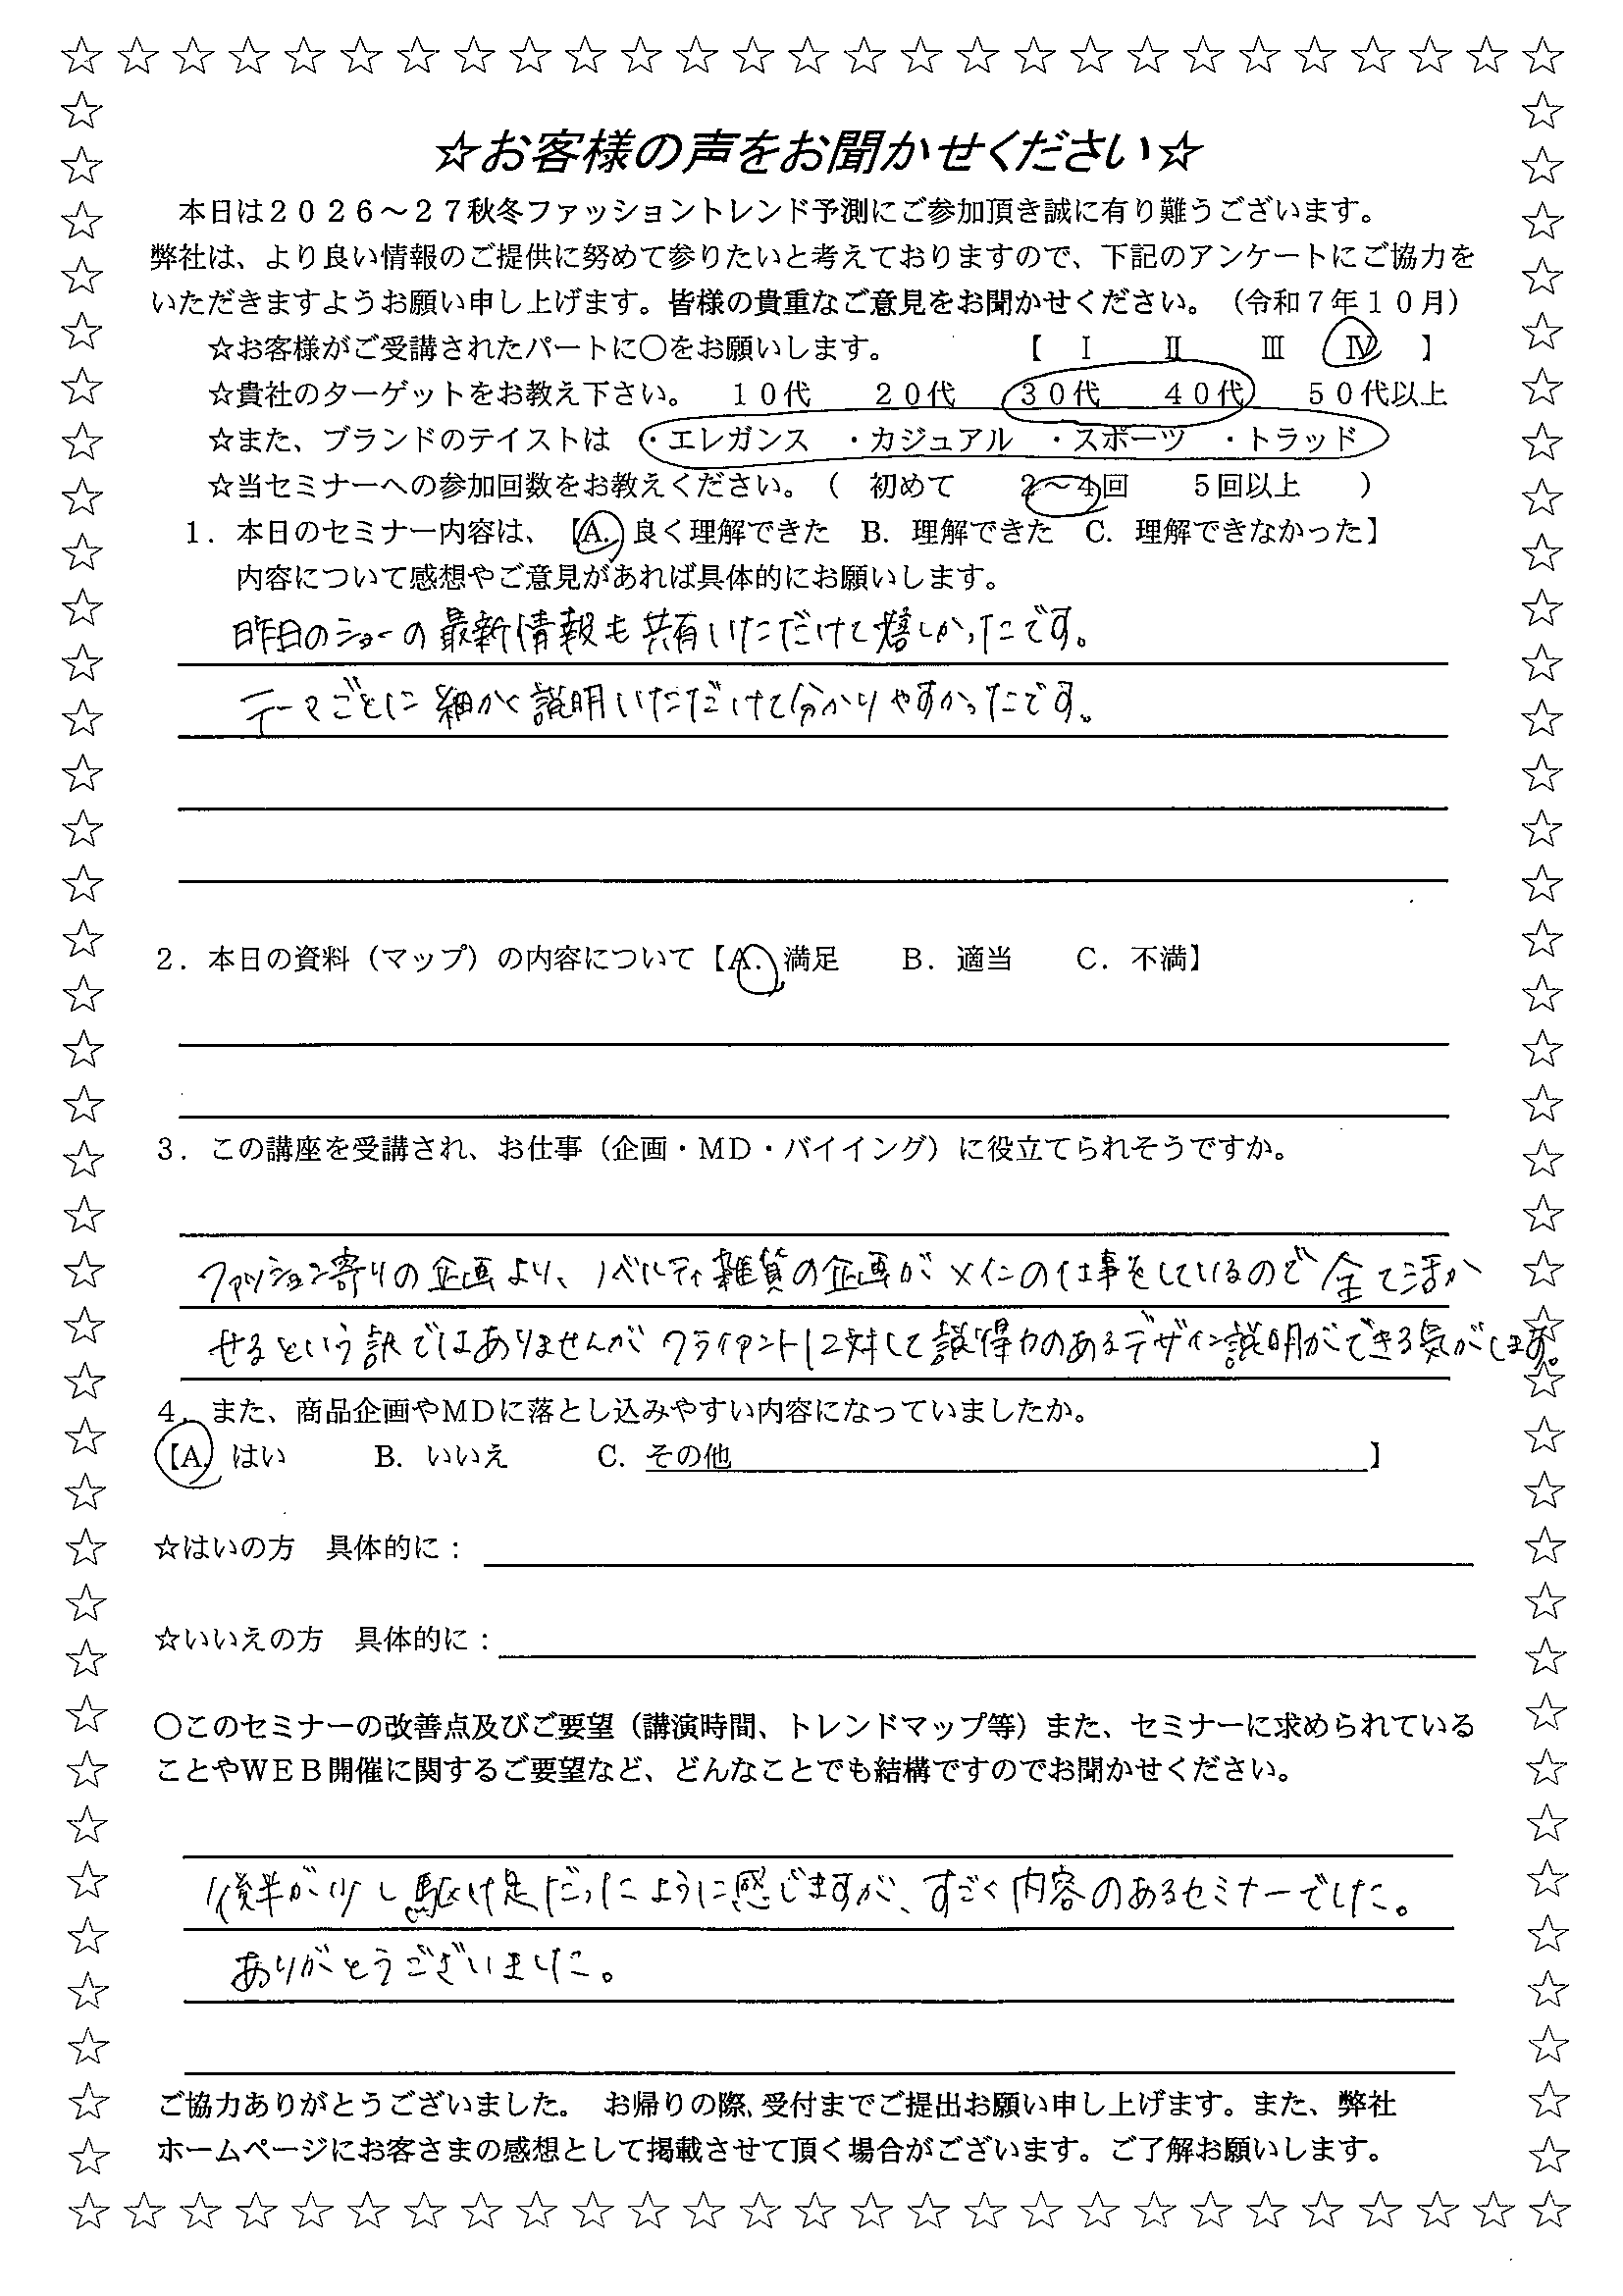 ☆お客様の声をお聞かせください☆
本日は２０２６～２７秋冬ファッショントレンド予測にご参加頂き誠に有り難うございます。
弊社は、より良い情報のご提供に努めて参りたいと考えておりますので、下記のアンケートにご協力を
いただきますようお願い申し上げます。皆様の貴重なご意見をお聞かせください。（令和７年１０月）
☆お客様がご受講されたパートに○をお願いします。　【　Ⅰ　Ⅱ　Ⅲ　Ⅳ　】
☆貴社のターゲットをお教え下さい。　１０代　２０代　３０代　４０代　５０代以上
☆また、ブランドのテイストは　・エレガンス　・カジュアル　・スポーツ　・トラッド
☆当セミナーへの参加回数をお教えください。（　初めて　２～４回　５回以上　）
１．本日のセミナー内容は、【A. 良く理解できた　B. 理解できた　C. 理解できなかった】
内容について感想やご意見があれば具体的にお願いします。
昨日のショーの最新情報も共有いただけて嬉しかったです。
テーマごとに細かく説明いただけて分かりやすかったです。
２．本日の資料（マップ）の内容について【A. 満足　B. 適当　C. 不満】
３．この講座を受講され、お仕事（企画・ＭＤ・バイイング）に役立てられそうですか。
ファッション寄りの企画より、ノベルティ雑貨の企画がメインの仕事をしているので全て活か
せるという訳ではありませんがクライアントに対して説得力のあるデザイン説明ができる気がします。
４．また、商品企画やＭＤに落とし込みやすい内容になっていましたか。
【A. はい　B. いいえ　C. その他　】
☆はいの方　具体的に：
☆いいえの方　具体的に：
○このセミナーの改善点及びご要望（講演時間、トレンドマップ等）また、セミナーに求められている
ことやＷＥＢ開催に関するご要望など、どんなことでも結構ですのでお聞かせください。
後半が少し駆け足だったように感じますが、すごく内容のあるセミナーでした。
ありがとうございました。
ご協力ありがとうございました。　お帰りの際、受付までご提出お願い申し上げます。また、弊社
ホームページにお客さまの感想として掲載させて頂く場合がございます。ご了解お願いします。